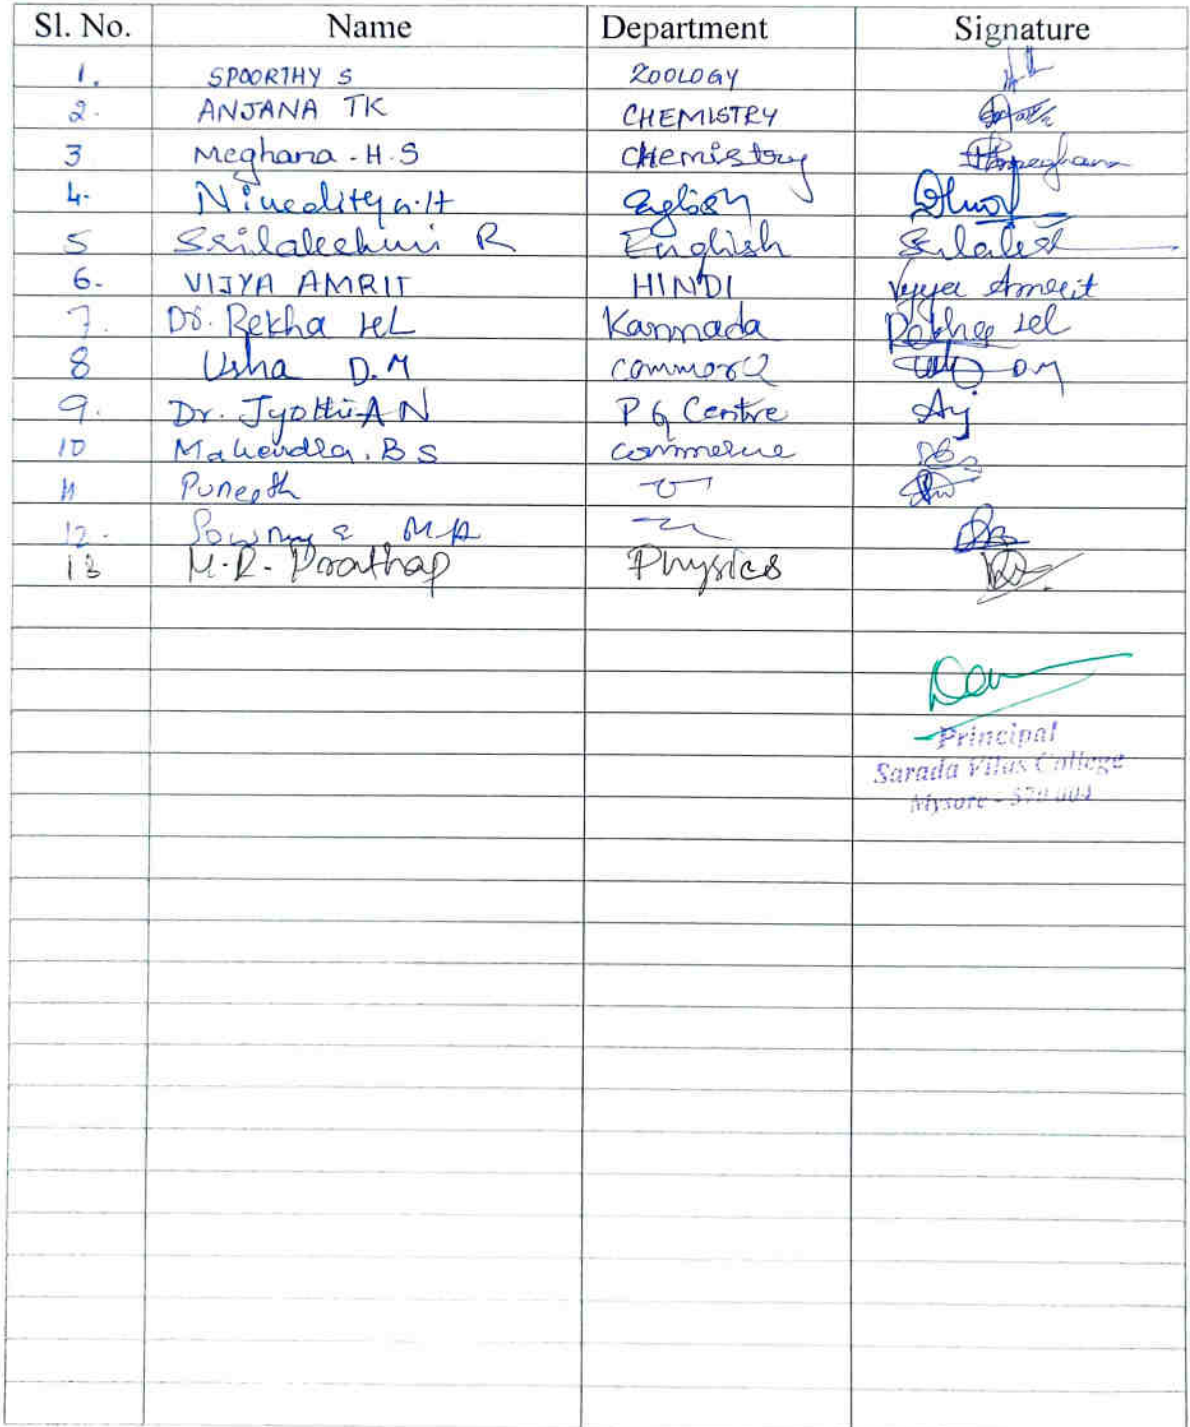 Sl. No. Name Department Signature
1. SPOORTHY S ZOOLOGY
2. ANJANA TK CHEMISTRY
3 Meghana - H. S Chemistry Hmeghana
4. English
5 Srilakshmi R English
6. VIJYA AMRIT HINDI Vijya Amrit
7. Dr. Rekha Kannada Rekha
8 Usha D.M commerce DM
9. Dr. Jyothi A N P G Centre
10 Mahendra. B S commerce
11 Puneeth
12.
13 M.R. Prathap Physics
Principal
Sarada Vilas College
Mysore - 570 004